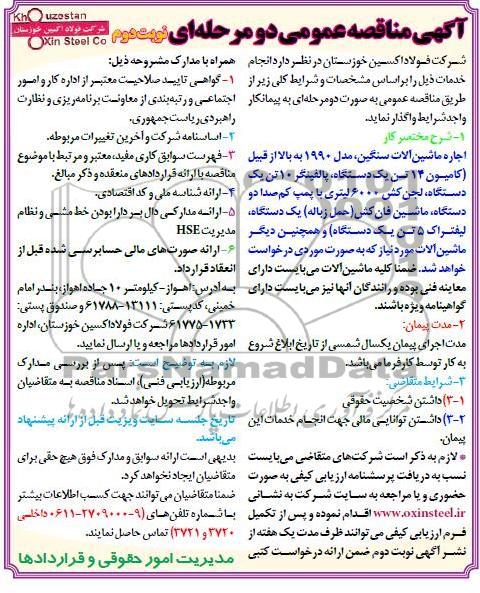 Khouzestan
شرکت فولاد اکسین خوزستان
Oxin Steel Co
آگهی مناقصه عمومی دو مرحله‌ای نوبت دوم
شرکت فولاد اکسین خوزستان در نظر دارد انجام
خدمات ذیل را براساس مشخصات و شرایط کلی زیر از
طریق مناقصه عمومی به صورت دو مرحله‌ای به پیمانکار
واجد شرایط واگذار نماید.
۱- شرح مختصر کار
اجاره ماشین‌آلات سنگین، مدل ۱۹۹۰ به بالا از قبیل
(کامیون ۱۴ تن یک دستگاه، پالفینگر ۱۰ تن یک
دستگاه، لجن کش ۶۰۰۰ لیتری با پمپ کم صدا دو
دستگاه، ماشین فان کش (حمل زباله) یک دستگاه،
لیفتراک ۵ تن یک دستگاه) و همچنین دیگر
ماشین‌آلات مورد نیاز که به صورت موردی درخواست
خواهد شد. ضمنا کلیه ماشین‌آلات می‌بایست دارای
معاینه فنی بوده و رانندگان آنها نیز می‌بایست دارای
گواهینامه ویژه باشند.
۲- مدت پیمان:
مدت اجرای پیمان یکسال شمسی از تاریخ ابلاغ شروع
به کار توسط کارفرما می‌باشد.
۳- شرایط متقاضی:
۳-۱) داشتن شخصیت حقوقی
۳-۲) داشتن توانایی مالی جهت انجام خدمات این
پیمان.
* لازم به ذکر است شرکت‌های متقاضی می‌بایست
نسبت به دریافت پرسشنامه ارزیابی کیفی به صورت
حضوری و یا مراجعه به سایت شرکت به نشانی
www.oxinsteel.ir اقدام نموده و پس از تکمیل
فرم ارزیابی کیفی می‌توانند ظرف مدت یک هفته از
نشر آگهی نوبت دوم ضمن ارائه درخواست کتبی
همراه با مدارک مشروحه ذیل:
۱- گواهی تایید صلاحیت معتبر از اداره کار و امور
اجتماعی و رتبه‌بندی از معاونت برنامه‌ریزی و نظارت
راهبردی ریاست جمهوری.
۲- اساسنامه شرکت و آخرین تغییرات مربوطه.
۳- فهرست سوابق کاری مفید، معتبر و مرتبط با موضوع
مناقصه با ارائه قراردادهای منعقده و ذکر مبالغ.
۴- ارائه شناسه ملی و کد اقتصادی.
۵- ارائه مدارکی دال بر دارا بودن خط مشی و نظام
مدیریت HSE
۶- ارائه صورت‌های مالی حسابرسی شده قبل از
انعقاد قرارداد.
به آدرس: اهواز- کیلومتر ۱۰ جاده اهواز، بندر امام
خمینی، کدپستی: ۱۳۱۱۱-۶۱۷۸۸ و صندوق پستی:
۱۷۳۳-۶۱۷۷۵ شرکت فولاد اکسین خوزستان، اداره
امور قراردادها مراجعه و یا ارسال نمایید.
لازم به توضیح است: پس از بررسی مدارک
مربوطه (ارزیابی فنی)، اسناد مناقصه به متقاضیان
واجد شرایط تحویل خواهد شد.
تاریخ جلسه سایت ویزیت قبل از ارائه پیشنهاد
می‌باشد.
بدیهی است ارائه سوابق و مدارک فوق هیچ حقی برای
متقاضیان ایجاد نخواهد کرد.
ضمنا متقاضیان می‌توانند جهت کسب اطلاعات بیشتر
با شماره تلفن‌های (۹-۲۷۰۹۰۰۰-۰۶۱۱ داخلی
۳۷۲۰ و ۳۷۲۱) تماس حاصل نمایند.
مدیریت امور حقوقی و قراردادها
ParsNamadData